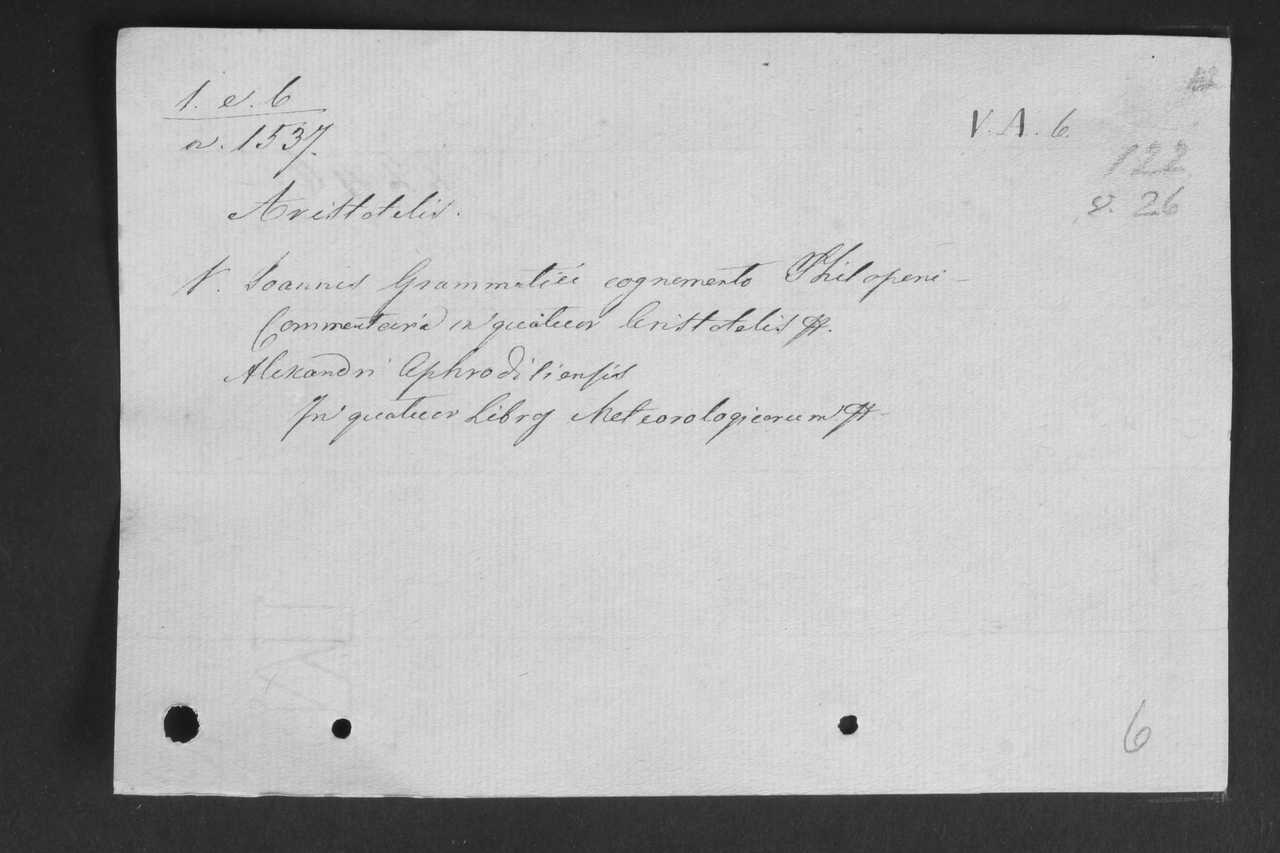 1. e. 6
a. 1537.
V. A. 6.
122
8. 26
Aristotelis.
V. Joannis Grammatici cognomento Philoponi -
Commentaria in quatuor Aristotelis
Alexandri Aphrodisiensis
In quatuor Libros Meteorologicorum
6